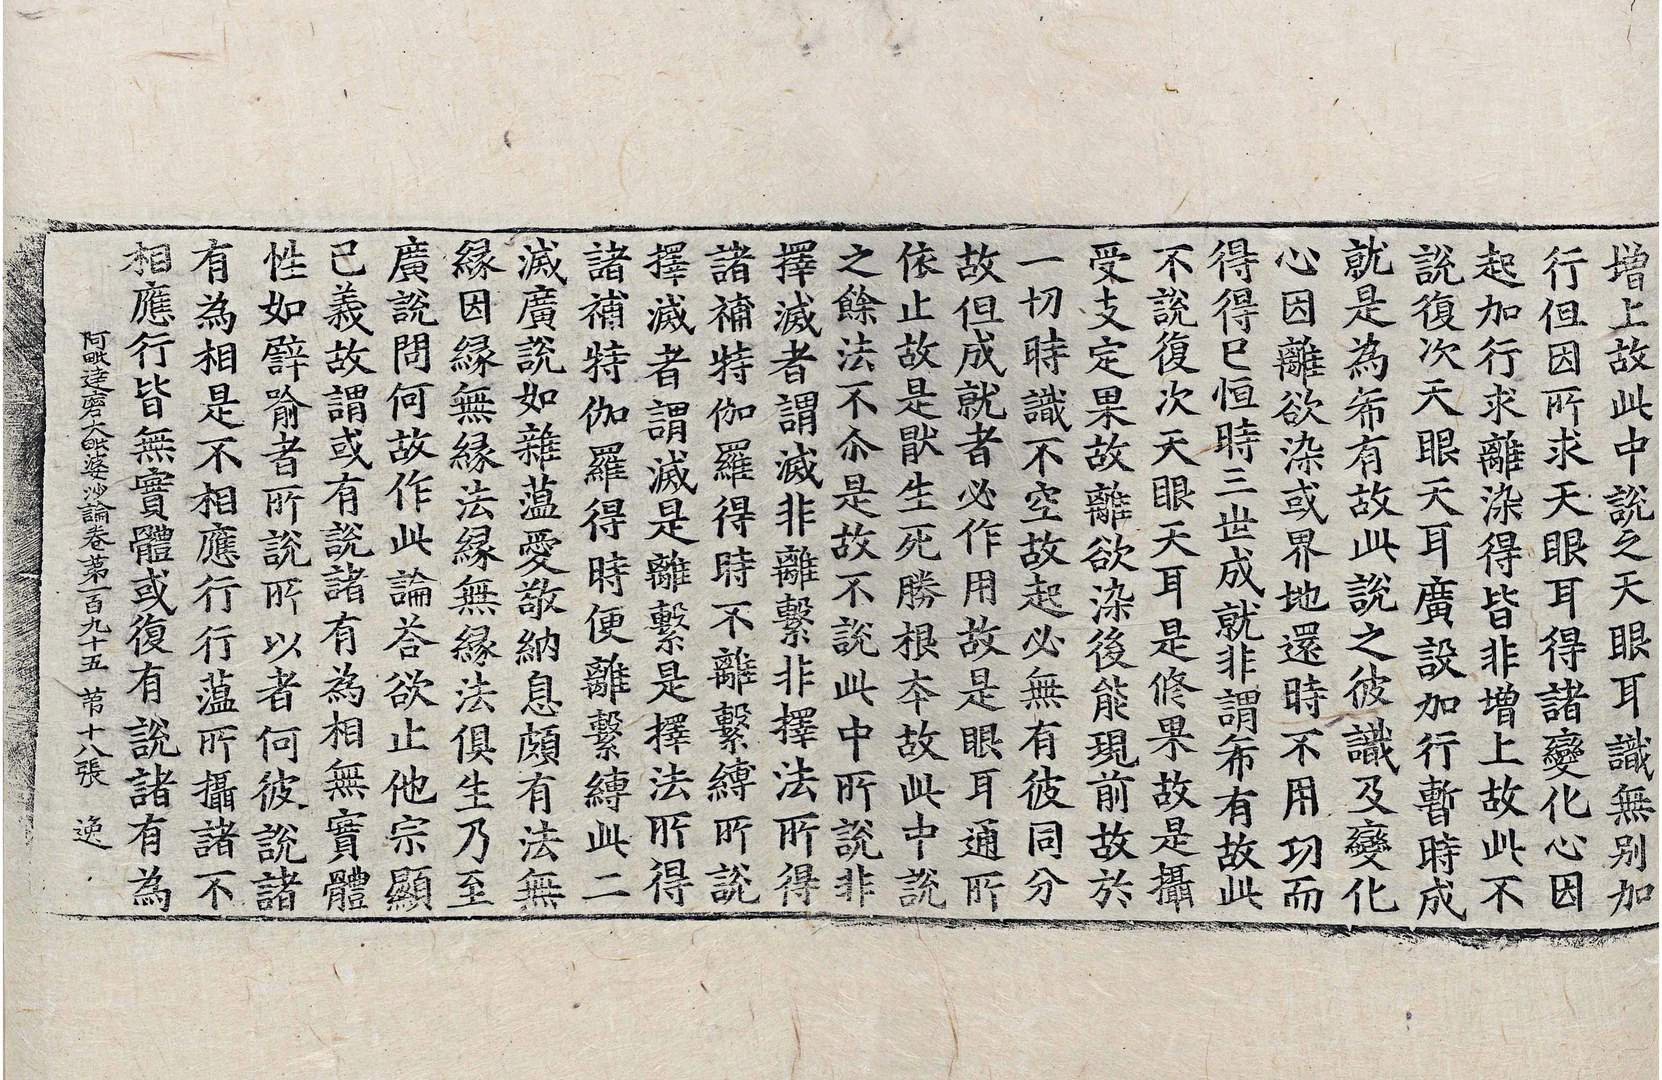 增上故此中說之天眼耳識無別加
行但因所求天眼耳得諸變化心因
起加行求離染得皆非增上故此不
說復次天眼天耳廣設加行暫時成
就是為希有故此說之彼識及變化
心因離欲染或界地還時不用功而
得得已恒時三世成就非謂希有故此
不說復次天眼天耳是修果故是攝
受支定果故離欲染後能現前故於
一切時識不空故起必無有彼同分
故但成就者必作用故是眼耳通所
依止故是猒生死勝根本故此中說
之餘法不尒是故不說此中所說非
擇滅者謂滅非離繫非擇法所得
諸補特伽羅得時不離繫縛所說
擇滅者謂滅是離繫是擇法所得
諸補特伽羅得時便離繫縛此二
滅廣說如雜薀愛敬納息頗有法無
緣因緣無緣法緣無緣法俱生乃至
廣說問何故作此論荅欲止他宗顯
已義故謂或有說諸有為相無實體
性如譬喻者所說所以者何彼說諸
有為相是不相應行行薀所攝諸不
相應行皆無實體或復有說諸有為
阿毗達磨大毗婆沙論卷第一百九十五 苐十八張 逸